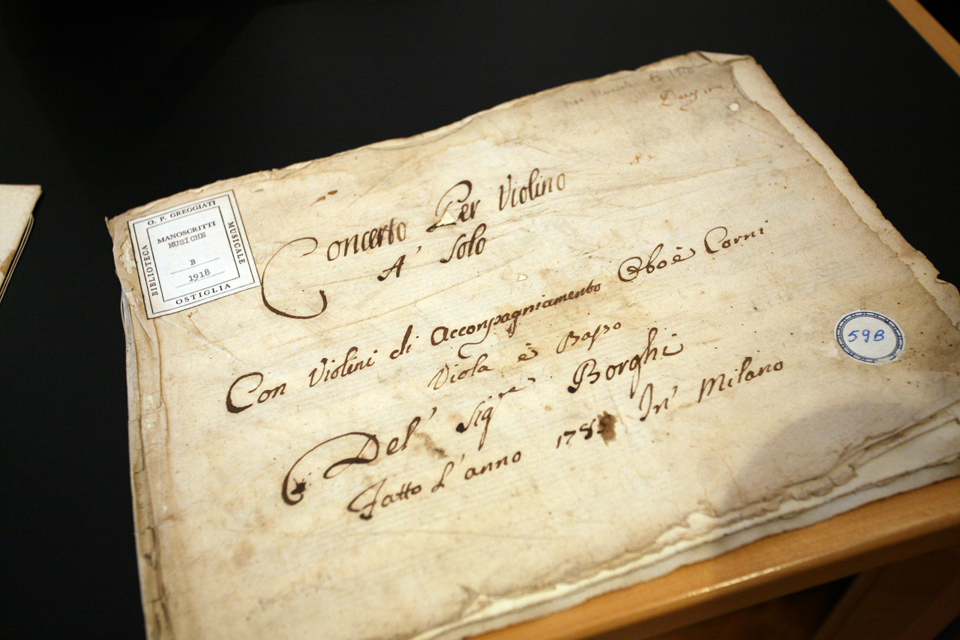 O. P. GREGGIATI
BIBLIOTECA
MUSICALE
OSTIGLIA
MANOSCRITTI
MUSICHE
B
1918
Concerto Per Violino
A' Solo
Con Violini di Acconpagniamento Oboè Corni
Viola è Basso
Del' Sigre Borghi
Fatto L'anno In' Milano
59B